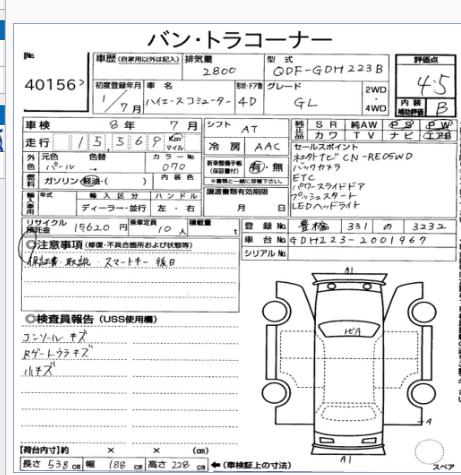 バン・トラコーナー
No. 40156
車歴 (自家用以外は記入) 排気量 2800 型式 QDF-GDH223B 評価点 4.5
初度登録年月 1/7月 車名 ハイエースコミューター 形状・ドア数 4D グレード GL 2WD・4WD 内装補助評価 B
車検 8年 7月 シフト AT 純正品 SR 純AW PS PW
走行 15569 Km マイル 冷房 AAC カワ TV ナビ エアB
外色 元色 パール→ 色替 カラーNo 070 新車整備手帳(保証書付) 有・無
セールスポイント
ネックナビ CN-RE05WD
バックカメラ
ETC
パワースライドドア
プッシュスタート
LEDヘッドライト
燃料 ガソリン・軽油・( ) 内装色
譲渡書類有効期限 月 日
輸入車用 年式 輸入区分 ディーラー・並行 ハンドル 左・右
リサイクル預託金 15620円 乗車定員 10人 積載量 t
登録No. 豊橋 331 の 3232
車台No. GDH223-2001967
シリアルNo.
◎注意事項 (修復・不具合箇所および状態等)
保証書・取説・スマートキー 後日
◎検査員報告 (USS使用欄)
コンソール キズ
Rゲートウラキズ
小キズ
A1
ヒビA
A
A1
スペア
【荷台内寸】約 × × (cm)
長さ 538cm 幅 188cm 高さ 228cm ←(車検証上の寸法)